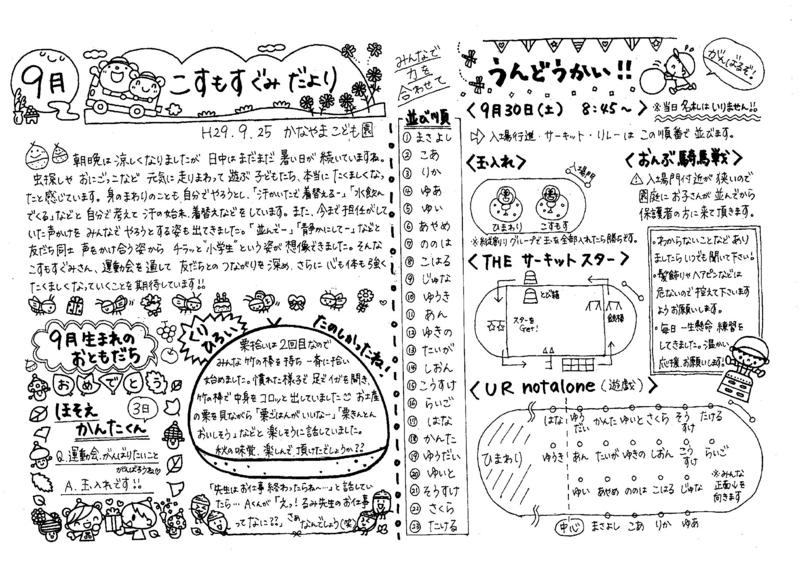 9月
こすもすぐみ だより
H29.9.25 かなやまこども園
朝晩は涼しくなりましたが 日中はまだまだ 暑い日が続いていますね。
虫探しや おにごっこなど 元気に走りまわって遊ぶ 子どもたち、本当に「たくましくなっ
た」と感じています。身のまわりのことも 自分でやろうとし、「汗かいたで着替える~」「水飲ん
でくる」などと 自分で考えて 汗の始末、着替えなどをしています。また、今まで担任がして
いた声かけを みんなでやろうとする姿も出てきました。「並んで~」「静かにして~」などと
友だち同士 声をかけ合う姿から チラッと“小学生”という姿が 想像できました。そんな
こすもすぐみさん、運動会を通して 友だちとのつながりを深め、さらに 心も体も強く
たくましくなっていくことを期待しています!!
9月生まれの
おともだち
おめでとう
ほそえ
かんたくん
3日
Q.運動会、がんばりたいこと
A.玉入れです!!
くり
ひろい
たのしかったね!
栗拾いは2回目なので
みんな 竹の棒を持ち 一斉に拾い
始めました。慣れた様子で 足でイガを開き、
竹の棒で 中身を コロッと出していました
お土産
の栗を見ながら「栗ごはんがいいな~」「栗きんとん
おいしそう」などと 楽しそうに話していました。
秋の味覚、楽しんで 頂けたでしょうか??
「先生はお仕事 終わったらね~」と話してい
たら… Aくんが「えっ!るみ先生のお仕事
ってなに??」さぁ
なんでしょう(笑)
みんなで
力を
合わせて
並び順
① まさよし
② こあ
③ りか
④ ゆあ
⑤ ゆい
⑥ あやめ
⑦ ののは
⑧ こはる
⑨ じゅな
⑩ ゆうき
⑪ あん
⑫ ゆきの
⑬ たいが
⑭ しおん
⑮ こうすけ
⑯ らいご
⑰ はな
⑱ かんた
⑲ ゆうだい
⑳ ゆいと
㉑ そうすけ
㉒ さくら
㉓ たける
うんどうかい!!
がんばるぞ!
<9月30日(土) 8:45~>
※当日 名札は いりません!!
入場行進・サーキット・リレーは この順番で 並びます。
<玉入れ>
入場門
ひまわり
こすもす
玉を全部入れたら勝ちです。
<おんぶ騎馬戦>
入場門付近が 狭いので
園庭に お子さんが 並んでから
保護者の方に 来て頂きます。
<THE サーキットスター>
とび箱
スターを
Get!
鉄棒
・わからないことなど あり
ましたら いつでも 聞いて下さい!
・髪飾りや ヘアピンなどは
危ないので 控えて下さいます
よう お願いします。
・毎日 一生懸命 練習を
してきました。温かい
応援、お願いします。
<UR notalone(遊戯)>
はな ゆうだい かんた ゆいと さくら そうすけ たける
ひまわり
ゆうき あん たいが ゆきの しおん こうすけ らいご
ゆい あやめ ののは こはる じゅな
※みんな
正面を
向きます
中心
まさよし こあ りか ゆあ